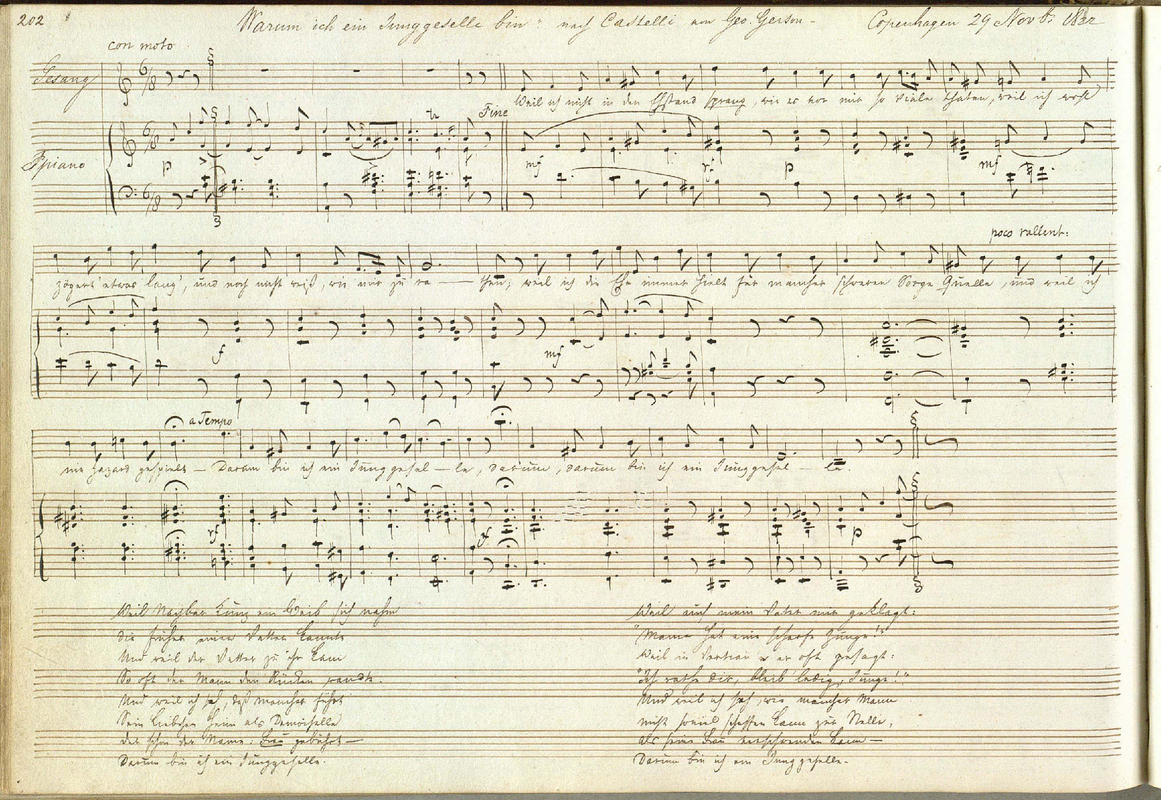 202 Warum ich ein Junggeselle bin nach Castelli von Geo. Gerson - Copenhagen 29 Novbr 1822
con moto
Gesang
Weil ich nicht in den Ehstand sprang, wie es vor mir so viele thaten, weil ich wohl
Fine
Ppiano
p mf p mf
poco rallent:
zögert' etwas lang', und noch nicht weiß, wie mir zu ra - - - then; weil ich die Ehe immer hielt für mancher schweren Sorge Quelle, und weil ich
f mf
a Tempo
nie Hazard gespielt - Darum bin ich ein Junggesel - le, darum, darum bin ich ein Junggesel - le.
f p
Weil Nachbar Kunz ein Weib sich nahm
Die früher einen Vetter kannte
Und weil der Vetter zu ihr kam
So oft der Mann den Rücken wandte.
Und weil ich sah, daß mancher führt
Sein Liebchen heim als Demoiselle
der schon der Name: Frau gebührt -
Darum bin ich ein Junggeselle.
Weil auch mein Vater mir geklagt:
"Mama hat eine scharfe Zunge!"
Weil in er oft gesagt:
"Ich rathe dir, bleib' ledig, Junge!"
Und weil ich sah, wie mancher Mann
nicht soviel schaffen kann zur Stelle,
als seine Frau verschwenden kann -
Darum bin ich ein Junggeselle.